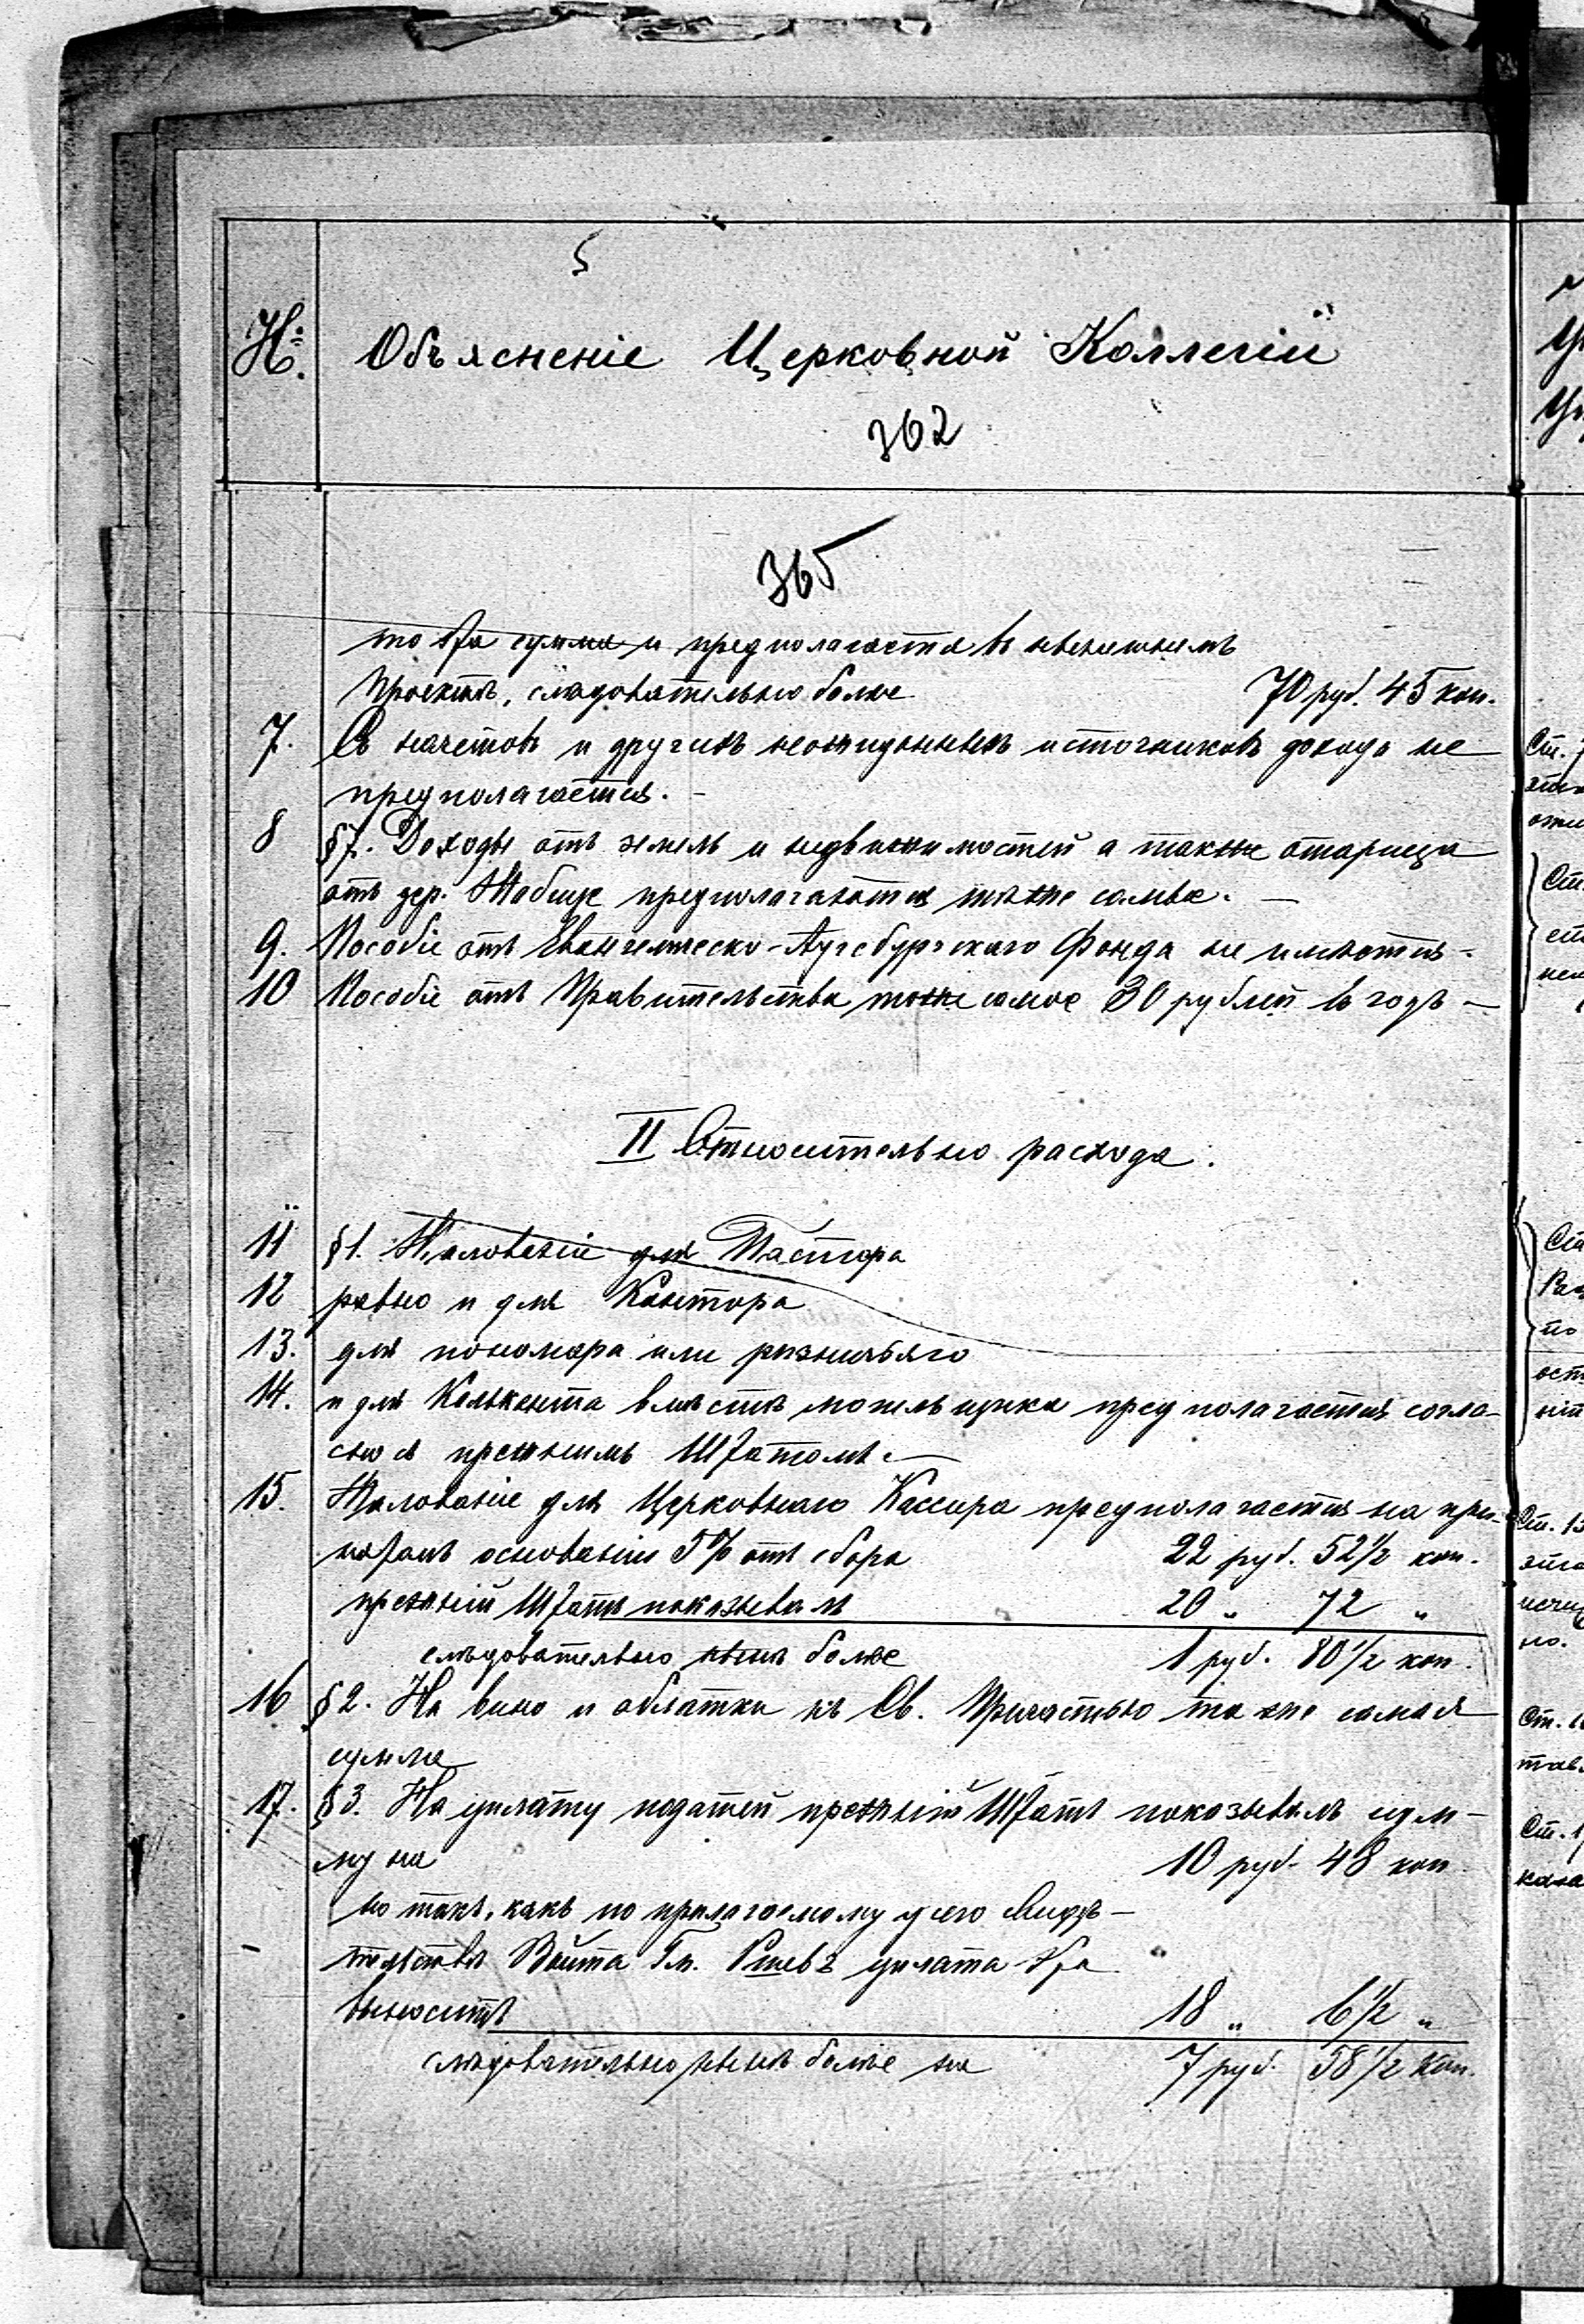 №. Объясненіе Церковной Коллегіи
362
365
то эта сумма и предполагается въ нынешнемъ
проектѣ, слѣдовательно болѣе 70 руб. 45 коп.
7. Съ начетовъ и другихъ неожиданныхъ источниковъ дохода не
предполагается. –
8 §7. Доходы отъ земель и недвижимостей а также
отъ дер. предполагаются тѣже самые. –
9. Пособіе отъ Евангелическо-Аугсбургскаго Фонда не имѣется -
10 Пособіе отъ Правительства тоже самое 30 рублей въ годъ –
II Относительно расхода.
11 §1. Жалованіе для Пастора
12 равно и для Кантора
13. для пономаря или ризничьяго
14. и для Калькента вмѣстѣ могильщика предполагается согла-
сно съ прежнимъ Штатомъ. –
15. Жалованіе для Церковнаго Кассира предполагается на при-
нятомъ основаніи 5% отъ сбора 22 руб. 52½ коп.
прежній Штатъ показывалъ 20 „ 72 „
слѣдовательно нынѣ болѣе 1 руб. 80½ коп.
16 §2. На вино и облатки къ Св. Причастью та же самая
сумма
17. §3. На уплату податей прежній Штатъ показывалъ сум-
му на 10 руб. 48 коп
но такъ, какъ по прилагаемому у сего Свидѣ-
тельствѣ Войта Гм. уплата эта
выноситъ 18 „ 6½ „
слѣдовательно нынѣ болѣе на 7 руб. 58½ коп.